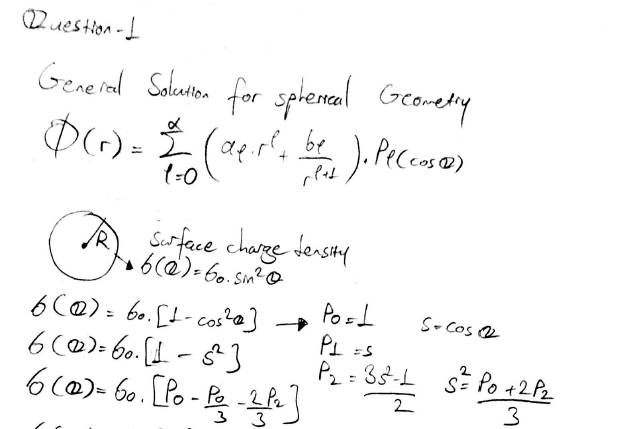 Question-1
General Solution for spherical Geometry
Φ(r) = ∑_{l=0}^{∞} (a_l.r^l + b_l/r^{l+1}). P_l(cosθ)
R surface charge density
σ(θ)=σ₀.sin²θ
σ(θ) = σ₀.[1-cos²θ] → P₀=1 S=cosθ
σ(θ)=σ₀.[1 - s²] P₁=s
σ(θ)=σ₀.[P₀ - P₀/3 - 2P₂/3] P₂=(3s²-1)/2 s²=(P₀+2P₂)/3